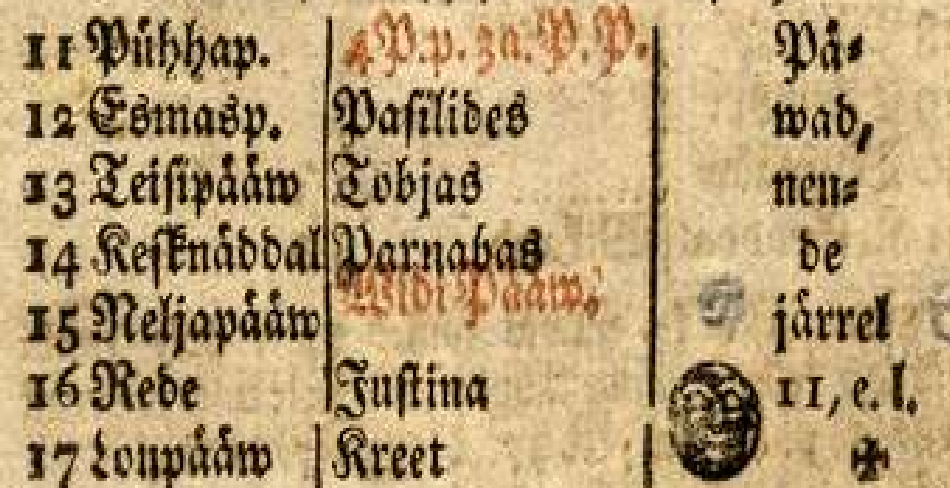 11 Pühhap. 4 P. p. 3a. P. P. Pä⸗
12 Esmasp. Pasilides wad,
13 Teisipääw Tobjas nen⸗
14 Kesknäddal Parnabas de
15 Neljapääw Widi Pääw, järrel
16 Rede Justina 11, e. l.
17 Loupääw Kreet ✠